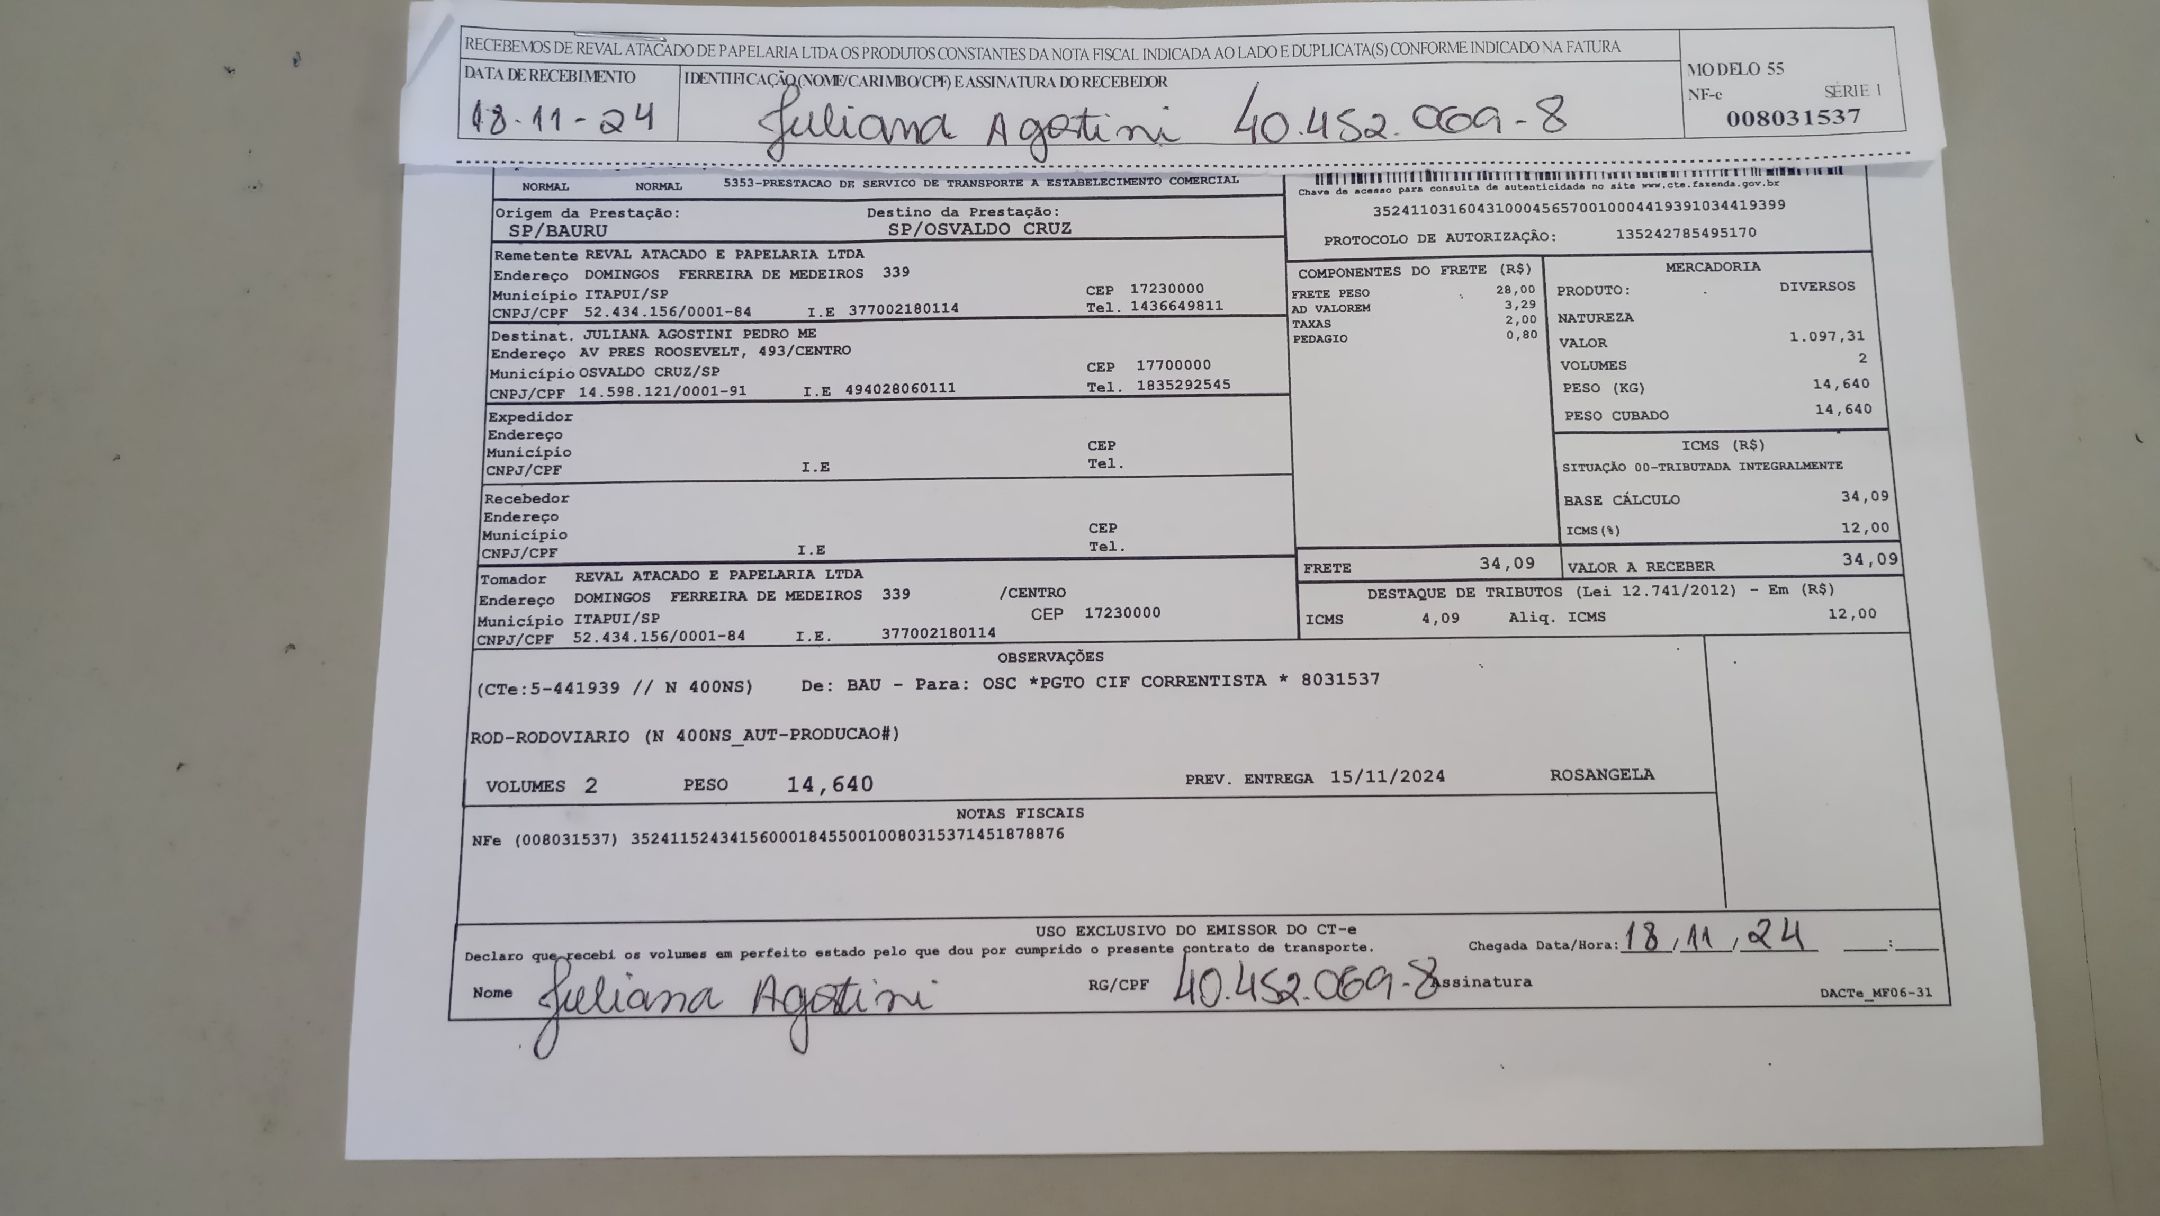 RECEBEMOS DE REVAL ATACADO DE PAPELARIA LTDA OS PRODUTOS CONSTANTES DA NOTA FISCAL INDICADA AO LADO E DUPLICATA(S) CONFORME INDICADO NA FATURA
DATA DE RECEBIMENTO
18-11-24
IDENTIFICAÇÃO(NOME/CARIMBO/CPF) E ASSINATURA DO RECEBEDOR
Juliana Agostini 40.452.069-8
MODELO 55
NF-e SÉRIE 1
008031537
NORMAL NORMAL 5353-PRESTACAO DE SERVICO DE TRANSPORTE A ESTABELECIMENTO COMERCIAL
Chave de acesso para consulta de autenticidade no site www.cte.fazenda.gov.br
35241103160431000456570010004419391034419399
PROTOCOLO DE AUTORIZAÇÃO: 135242785495170
Origem da Prestação: Destino da Prestação:
SP/BAURU SP/OSVALDO CRUZ
Remetente REVAL ATACADO E PAPELARIA LTDA
Endereço DOMINGOS FERREIRA DE MEDEIROS 339
Município ITAPUI/SP CEP 17230000
CNPJ/CPF 52.434.156/0001-84 I.E 377002180114 Tel. 1436649811
Destinat. JULIANA AGOSTINI PEDRO ME
Endereço AV PRES ROOSEVELT, 493/CENTRO
Município OSVALDO CRUZ/SP CEP 17700000
CNPJ/CPF 14.598.121/0001-91 I.E 494028060111 Tel. 1835292545
Expedidor
Endereço
Município CEP
CNPJ/CPF I.E Tel.
Recebedor
Endereço
Município CEP
CNPJ/CPF I.E Tel.
Tomador REVAL ATACADO E PAPELARIA LTDA
Endereço DOMINGOS FERREIRA DE MEDEIROS 339 /CENTRO
Município ITAPUI/SP CEP 17230000
CNPJ/CPF 52.434.156/0001-84 I.E. 377002180114
COMPONENTES DO FRETE (R$)
FRETE PESO 28,00
AD VALOREM 3,29
TAXAS 2,00
PEDAGIO 0,80
MERCADORIA
PRODUTO: DIVERSOS
NATUREZA
VALOR 1.097,31
VOLUMES 2
PESO (KG) 14,640
PESO CUBADO 14,640
ICMS (R$)
SITUAÇÃO 00-TRIBUTADA INTEGRALMENTE
BASE CÁLCULO 34,09
ICMS(%) 12,00
FRETE 34,09 VALOR A RECEBER 34,09
DESTAQUE DE TRIBUTOS (Lei 12.741/2012) - Em (R$)
ICMS 4,09 Aliq. ICMS 12,00
OBSERVAÇÕES
(CTe:5-441939 // N 400NS) De: BAU - Para: OSC *PGTO CIF CORRENTISTA * 8031537
ROD-RODOVIARIO (N 400NS_AUT-PRODUCAO#)
VOLUMES 2 PESO 14,640 PREV. ENTREGA 15/11/2024 ROSANGELA
NOTAS FISCAIS
NFe (008031537) 35241152434156000184550010080315371451878876
USO EXCLUSIVO DO EMISSOR DO CT-e
Declaro que recebi os volumes em perfeito estado pelo que dou por cumprido o presente contrato de transporte. Chegada Data/Hora: 18/11/24 __:__
Nome Juliana Agostini RG/CPF 40.452.069-8 Assinatura
DACTe_MF06-31